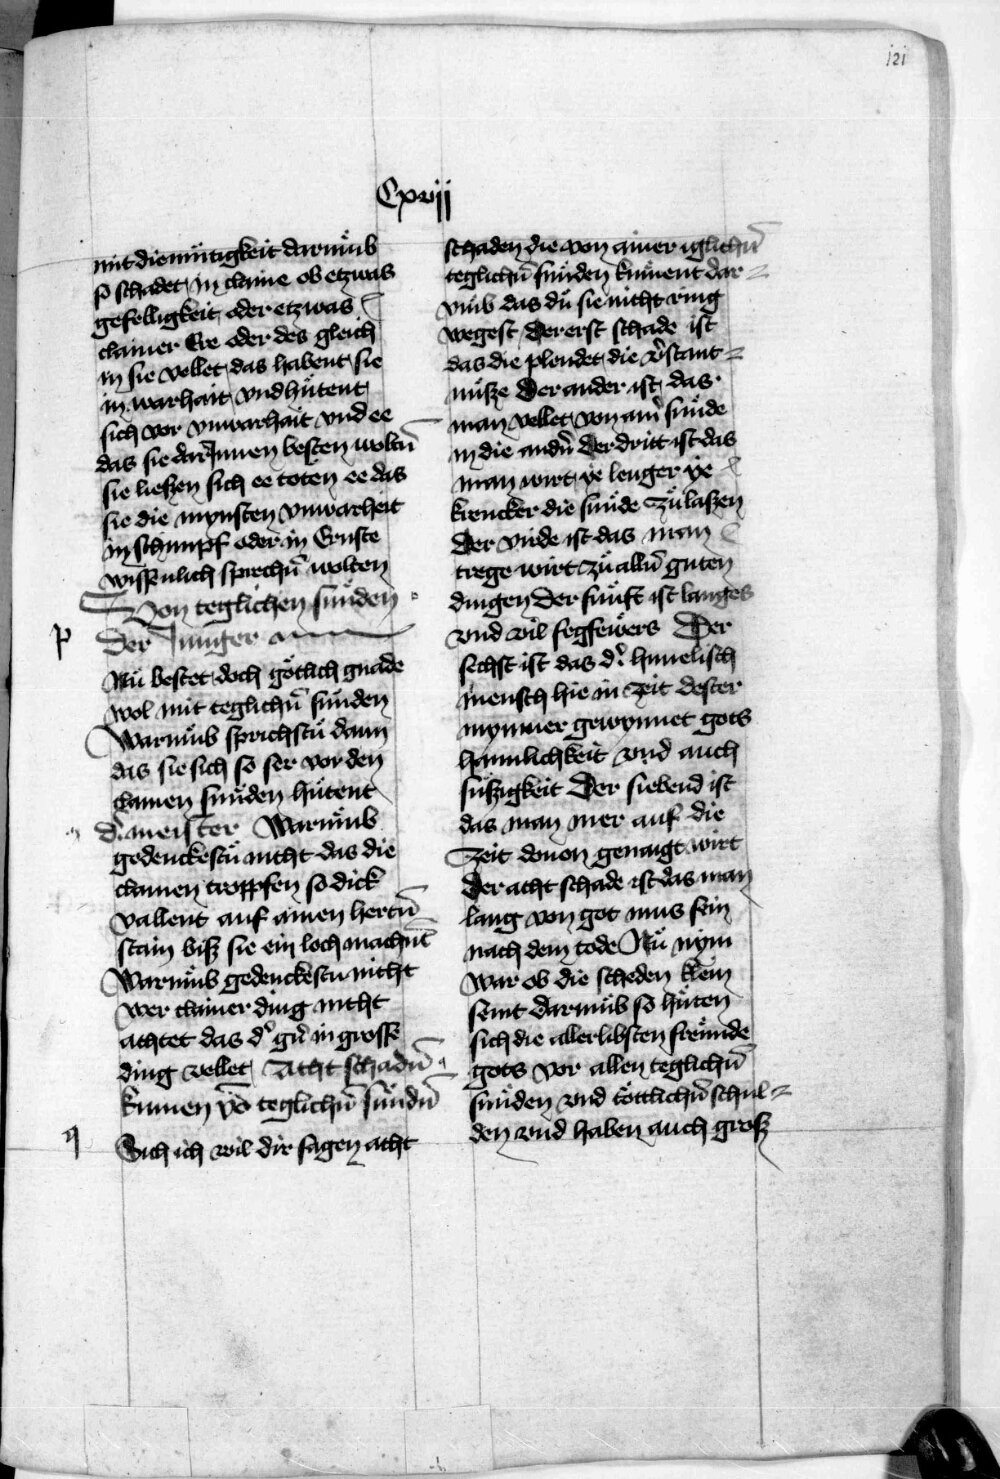 121
Cxvij
mit diemuͤtigkeit darumͤb
so schadet in claine ob etzwas
gefelligkeit oder etzwas
clainer Ere oder des gleich
in sie vellet das habent sie
in warhait vnd huͤtent
sich vor vnwarhait vnd ee
das sie darinnen besten woltn̄
sie lieszen sich ee toten ee das
sie die mynsten vnwarheit
in schimpf oder in Ernste
wissenlich sprechn̄ wolten
Von teglichen suͤnden
p
Der Junger
Nuͤ bestet doch goͤtlich gnade
wol mit teglichn̄ sunden
Warumͤb sprichstuͤ dann
das sie sich so ser vor den
clainen suͤnden huͤtent
d' meister Warumͤb
gedenckestuͤ nicht das die
clainen troppfen so dick
vallent auf ainen hertn̄
stain bisz sie ein loch machn̄t
Warumͤb gedenckestu nicht
wer clainer ding nicht
achtet das d' gn̄ in grosse
ding vellet Acht schadn̄
kumen vō teglichn̄ suͤndn̄
q
Sich ich wil dir sagen acht
schaden die von ainer iglichn̄
teglichn̄ suͤnden kuͤment dar
vmb das duͤ sie nicht ring
wegest Der erst schade ist
das die plendet die v'stant
nuͤsze Der ander ist das
man vellet von ain' suͤnde
in die andn̄ Der dritt ist das
man wirt ye lenger ye
krencker die suͤnde zuͤ laszen
Der virde ist das man
trege wirt zuͤ alln̄ guten
dingen Der fuͤnft ist langes
vnd vil fegfewͤers Der
sechst ist das d' himelisch
mensch hie in zeit dester
mynner gewynnet gots
haimlichkeit vnd auch
suͤszigkeit Der siebend ist
das man mer auf die
zeit douon genaigt wirt
Der acht schade ist das man
lang von got mus sein
nach dem tode Nuͤ nym
war ob die scheden klein
seint darumͤb so huͤten
sich die allerlibsten freuͤnde
gots vor allen teglichn̄
suͤnden vnd toͤttlichn̄ schul
den vnd haben auch grosz